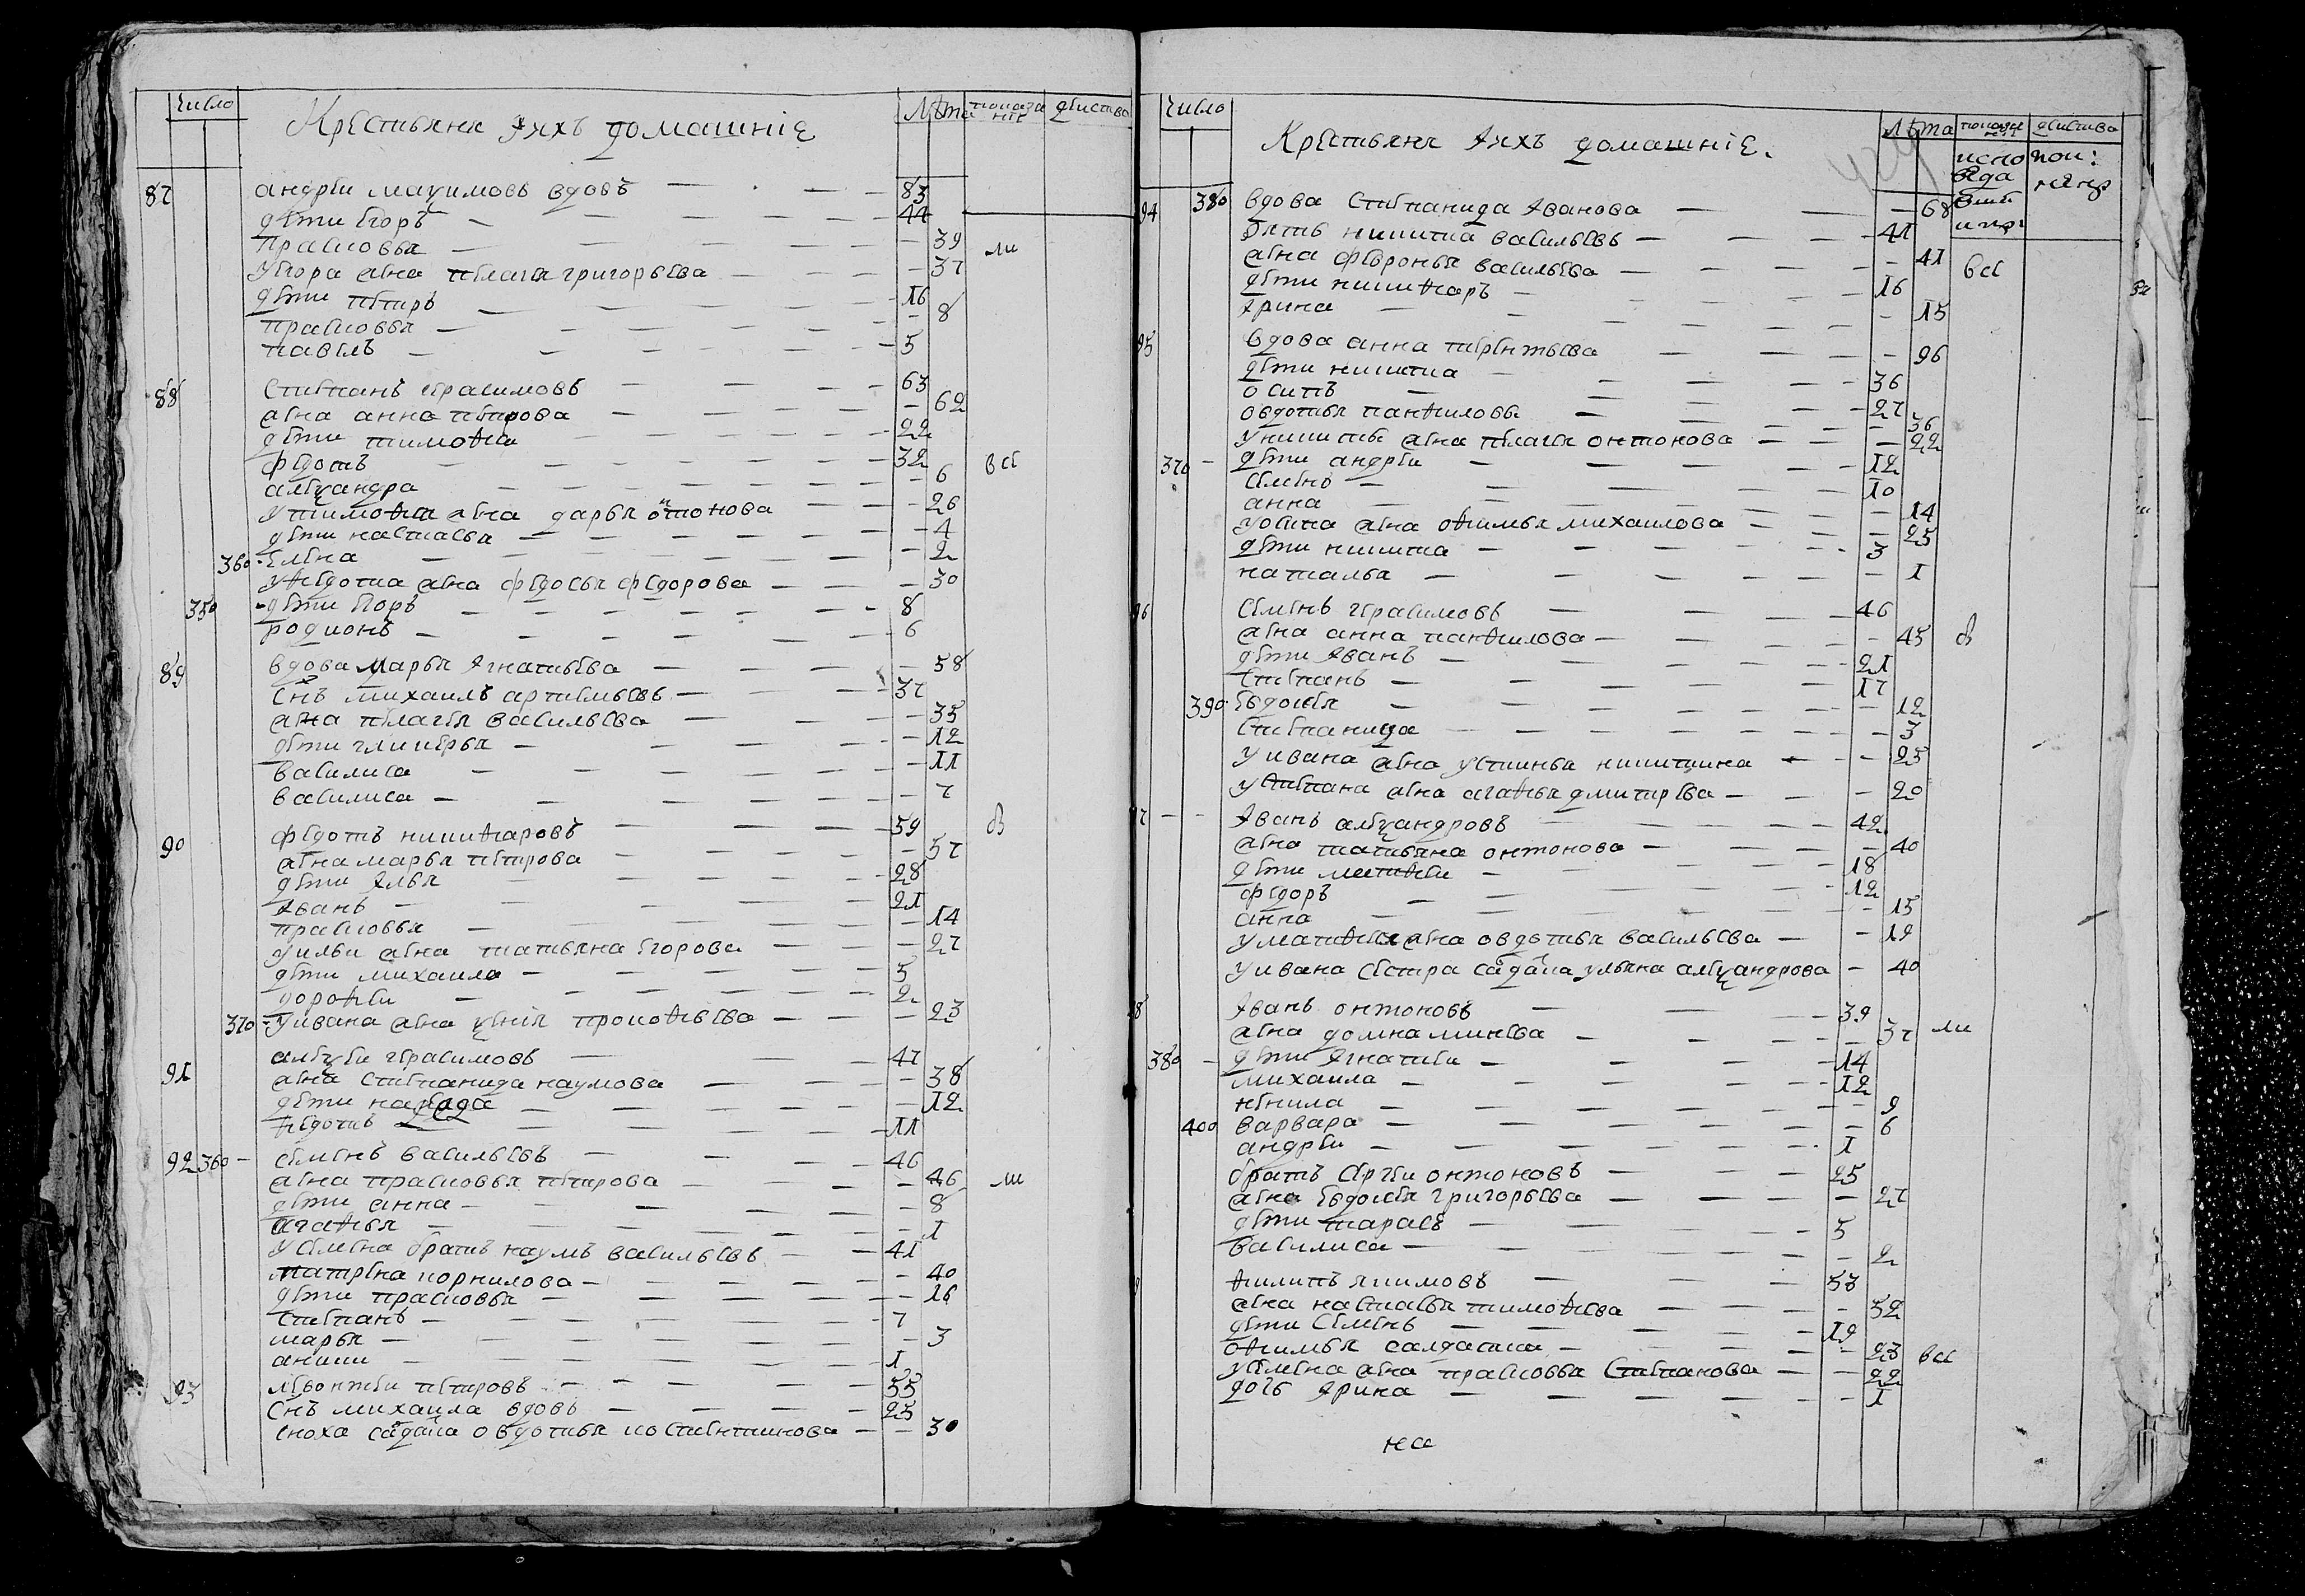 число
Крестьяня Ихъ домашніе
Лѣта показа ніе действа
87 андрѣи маѯимовъ вдовъ — 83
дѣти егоръ — 44
прасковья — 39 ли
у егора жена пелагея григорьева — 37
дѣти петръ — 16
прасковья — 8
павелъ — 5
88 степанъ герасимовъ — 63
жена анна петрова — 62
дѣти тимоѳеи — 22
ѳедотъ — 32 все
алеѯандра — 6
у тимоѳея жена дарья онтонова — 26
дѣти настасья — 4
360 елена — 2
у ѳедота жена федосья федорова — 30
350 дѣти егоръ — 8
родионъ — 6
89 вдова марья Игнатьева — 58
снъ михаилъ артемьевъ — 37
жена пелагея васильева — 35
дѣти гликерья — 12
василиса — 11
василиса — 7
90 федотъ никиѳаровъ — 59
жена марья петрова — 57
дѣти Илья — 28
Иванъ — 21
прасковья — 14
у ильи жена татьяна егорова — 27
дѣти михаила — 5
дороѳеи — 2
370 у ивана жена ѯения прокоѳьева — 23
91 алеѯеи герасимовъ — 47
жена степанида наумова — 38
дѣти — 12
ѳедотъ — 11
92 360 семенъ васильевъ — 46
жена прасковья петрова — 46 ли
дѣти анна — 8
агаѳья — 1
у семена братъ наумъ васильевъ — 41
матрена корнилова — 40
дѣти прасковья — 16
степанъ — 7
марья — 3
1
93 левонтеи петровъ — 55
снъ михаила вдовъ — 25
сноха салдатка овдотья костентинова — 30
число
Крестьяня Ихъ домашніе.
Лѣта показа ніе действа
испо вѣда
94 380 вдова степанида Иванова — 68
зять никита васильевъ — 41
жена февронья васильева — 41 все
дѣти никиѳаръ — 16
Ирина — 15
95 вдова анна терентьева — 96
дѣти никита — 36
осипъ — 27
овдотья панѳилова — 36
у никиты жена пелагея онтонова — 22
370 дѣти андрѣи — 12
семенъ — 10
анна — 14
у осипа жена оѳимья михаилова — 25
дѣти никита — 3
наталья — 1
96 семенъ герасимовъ — 46
жена анна панѳилова — 45
дѣти Иванъ — 21
степанъ — 17
390 евдокея — 12
степанида — 3
у ивана жена устинья никитина — 25
у степана жена агаѳья дмитрева — 20
7 Иванъ алеѯандровъ — 42
жена татьяна онтонова — 40
дѣти матвѣи — 18
федоръ — 12
анна — 15
у матвѣя жена овдотья васильева — 19
у ивана сестра салдатка ульяна алеѯандрова — 40
8 Иванъ онтоновъ — 39
жена домна минѣева — 37 ли
380 дѣти Игнатеи — 14
михаила — 12
ненила — 9
400 варвара — 6
андрѣи — 1
братъ сергѣи онтоновъ — 25
жена евдокея григорьева — 27
дѣти тарасъ — 5
василиса — 2
ѳилипъ якимовъ — 53
жена настасья тимоѳеева — 52
дѣти семенъ — 19
оѳимья салдатка — 23 все
у семена жена прасковья степанова — 22
дочь Ирина — 1
на